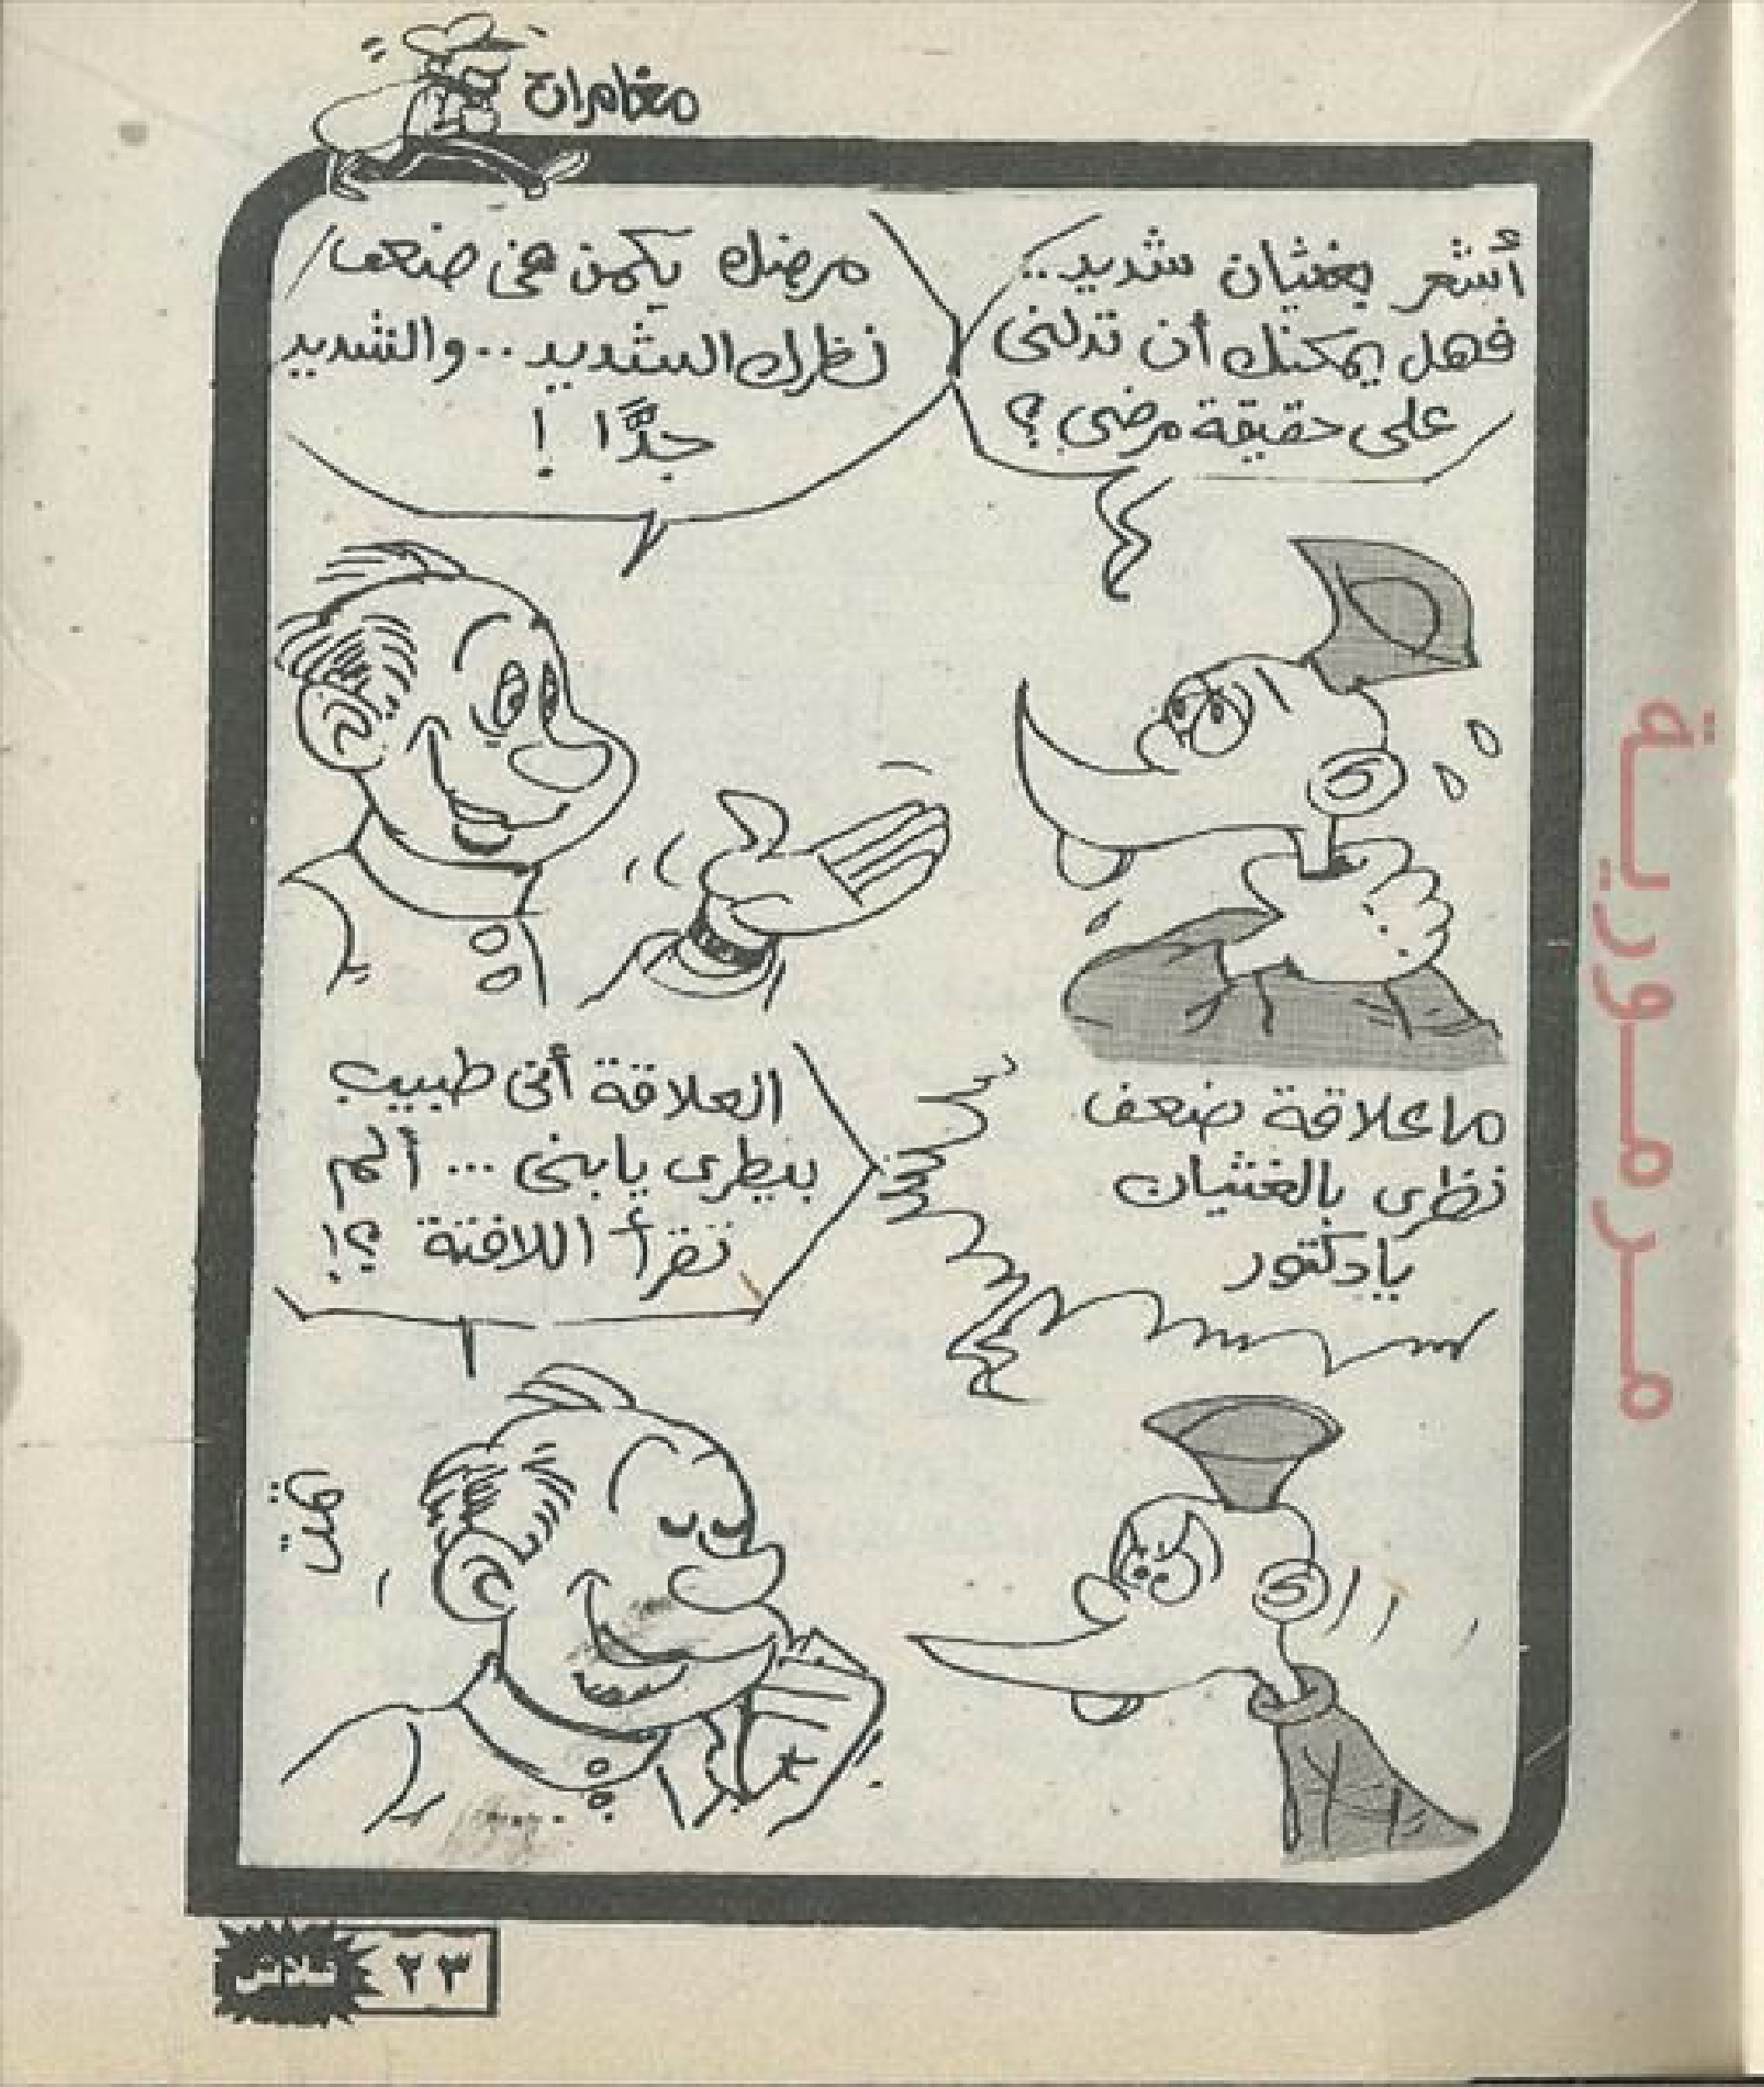 مغامرات
أشعر بغثيان شديد..
فهل يمكنك أن تدلنى
على حقيقة مرضى؟
مرضك يكمن فى ضعف
نظرك الشديد .. والشديد
جدًّا !
ما علاقة ضعف
نظرى بالغثيان
يا دكتور
العلاقة أنى طبيب
بيطرى يا بنى ... ألم
تقرأ اللافتة ؟!
تمت
٢٣
فلاش
مرمورية